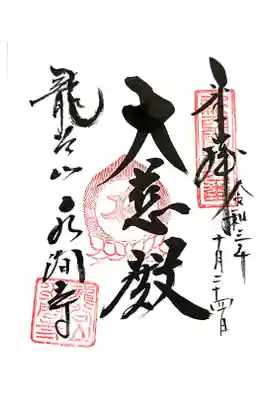 奉拝
令和三年
十月二十四日
大慈殿
龍谷山
水間寺